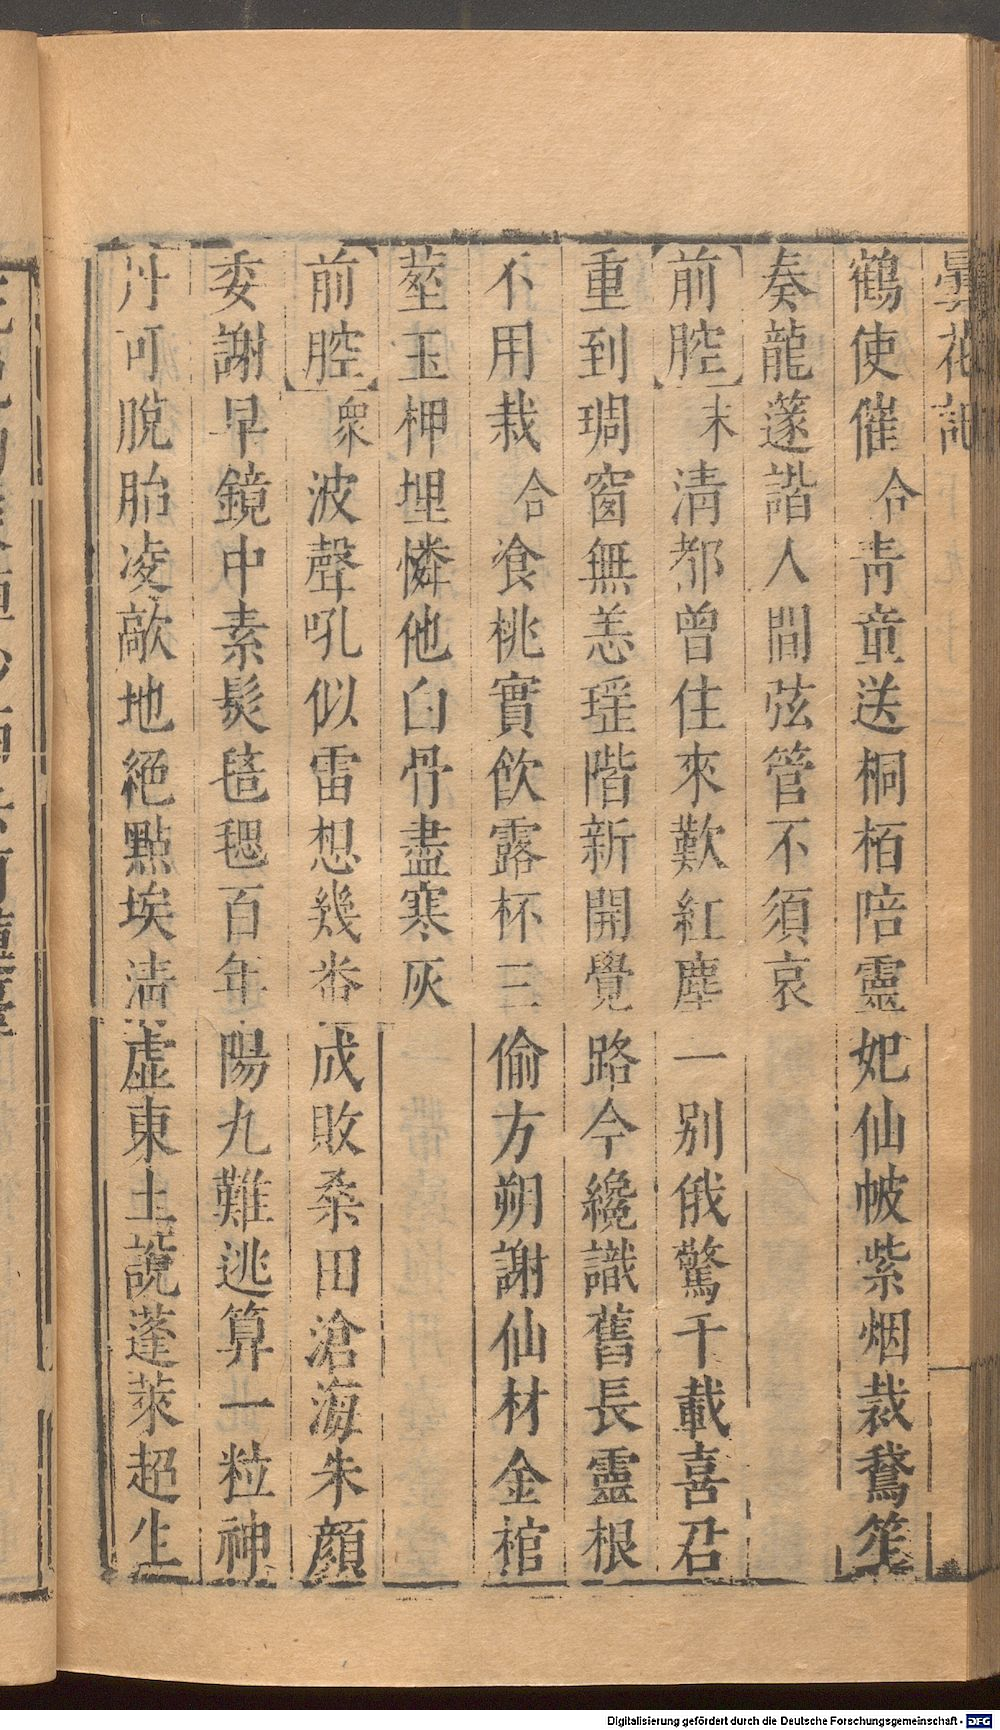 曇花記
鶴使催合青童送桐栢陪靈妃仙帔紫烟裁鵞笙
奏龍邃諧人間弦管不須哀
【前腔】末清都曾住來歎紅塵一别俄驚千載喜君
重到琱窗無恙瑶階新開覺路今纔識舊長靈根
不用栽合飡桃實飲露杯三偷方朔謝仙材金棺
塟玉柙埋憐他白骨盡寒灰
【前腔】衆波聲吼似雷想幾畨成敗桑田滄海朱顔
委謝早鏡中素髮毶毸百年陽九難逃算一粒神
丹可脫胎凌敲地絕點埃淸虛東土說蓬萊超生
Digitalisierung gefördert durch die Deutsche Forschungsgemeinschaft - DFG